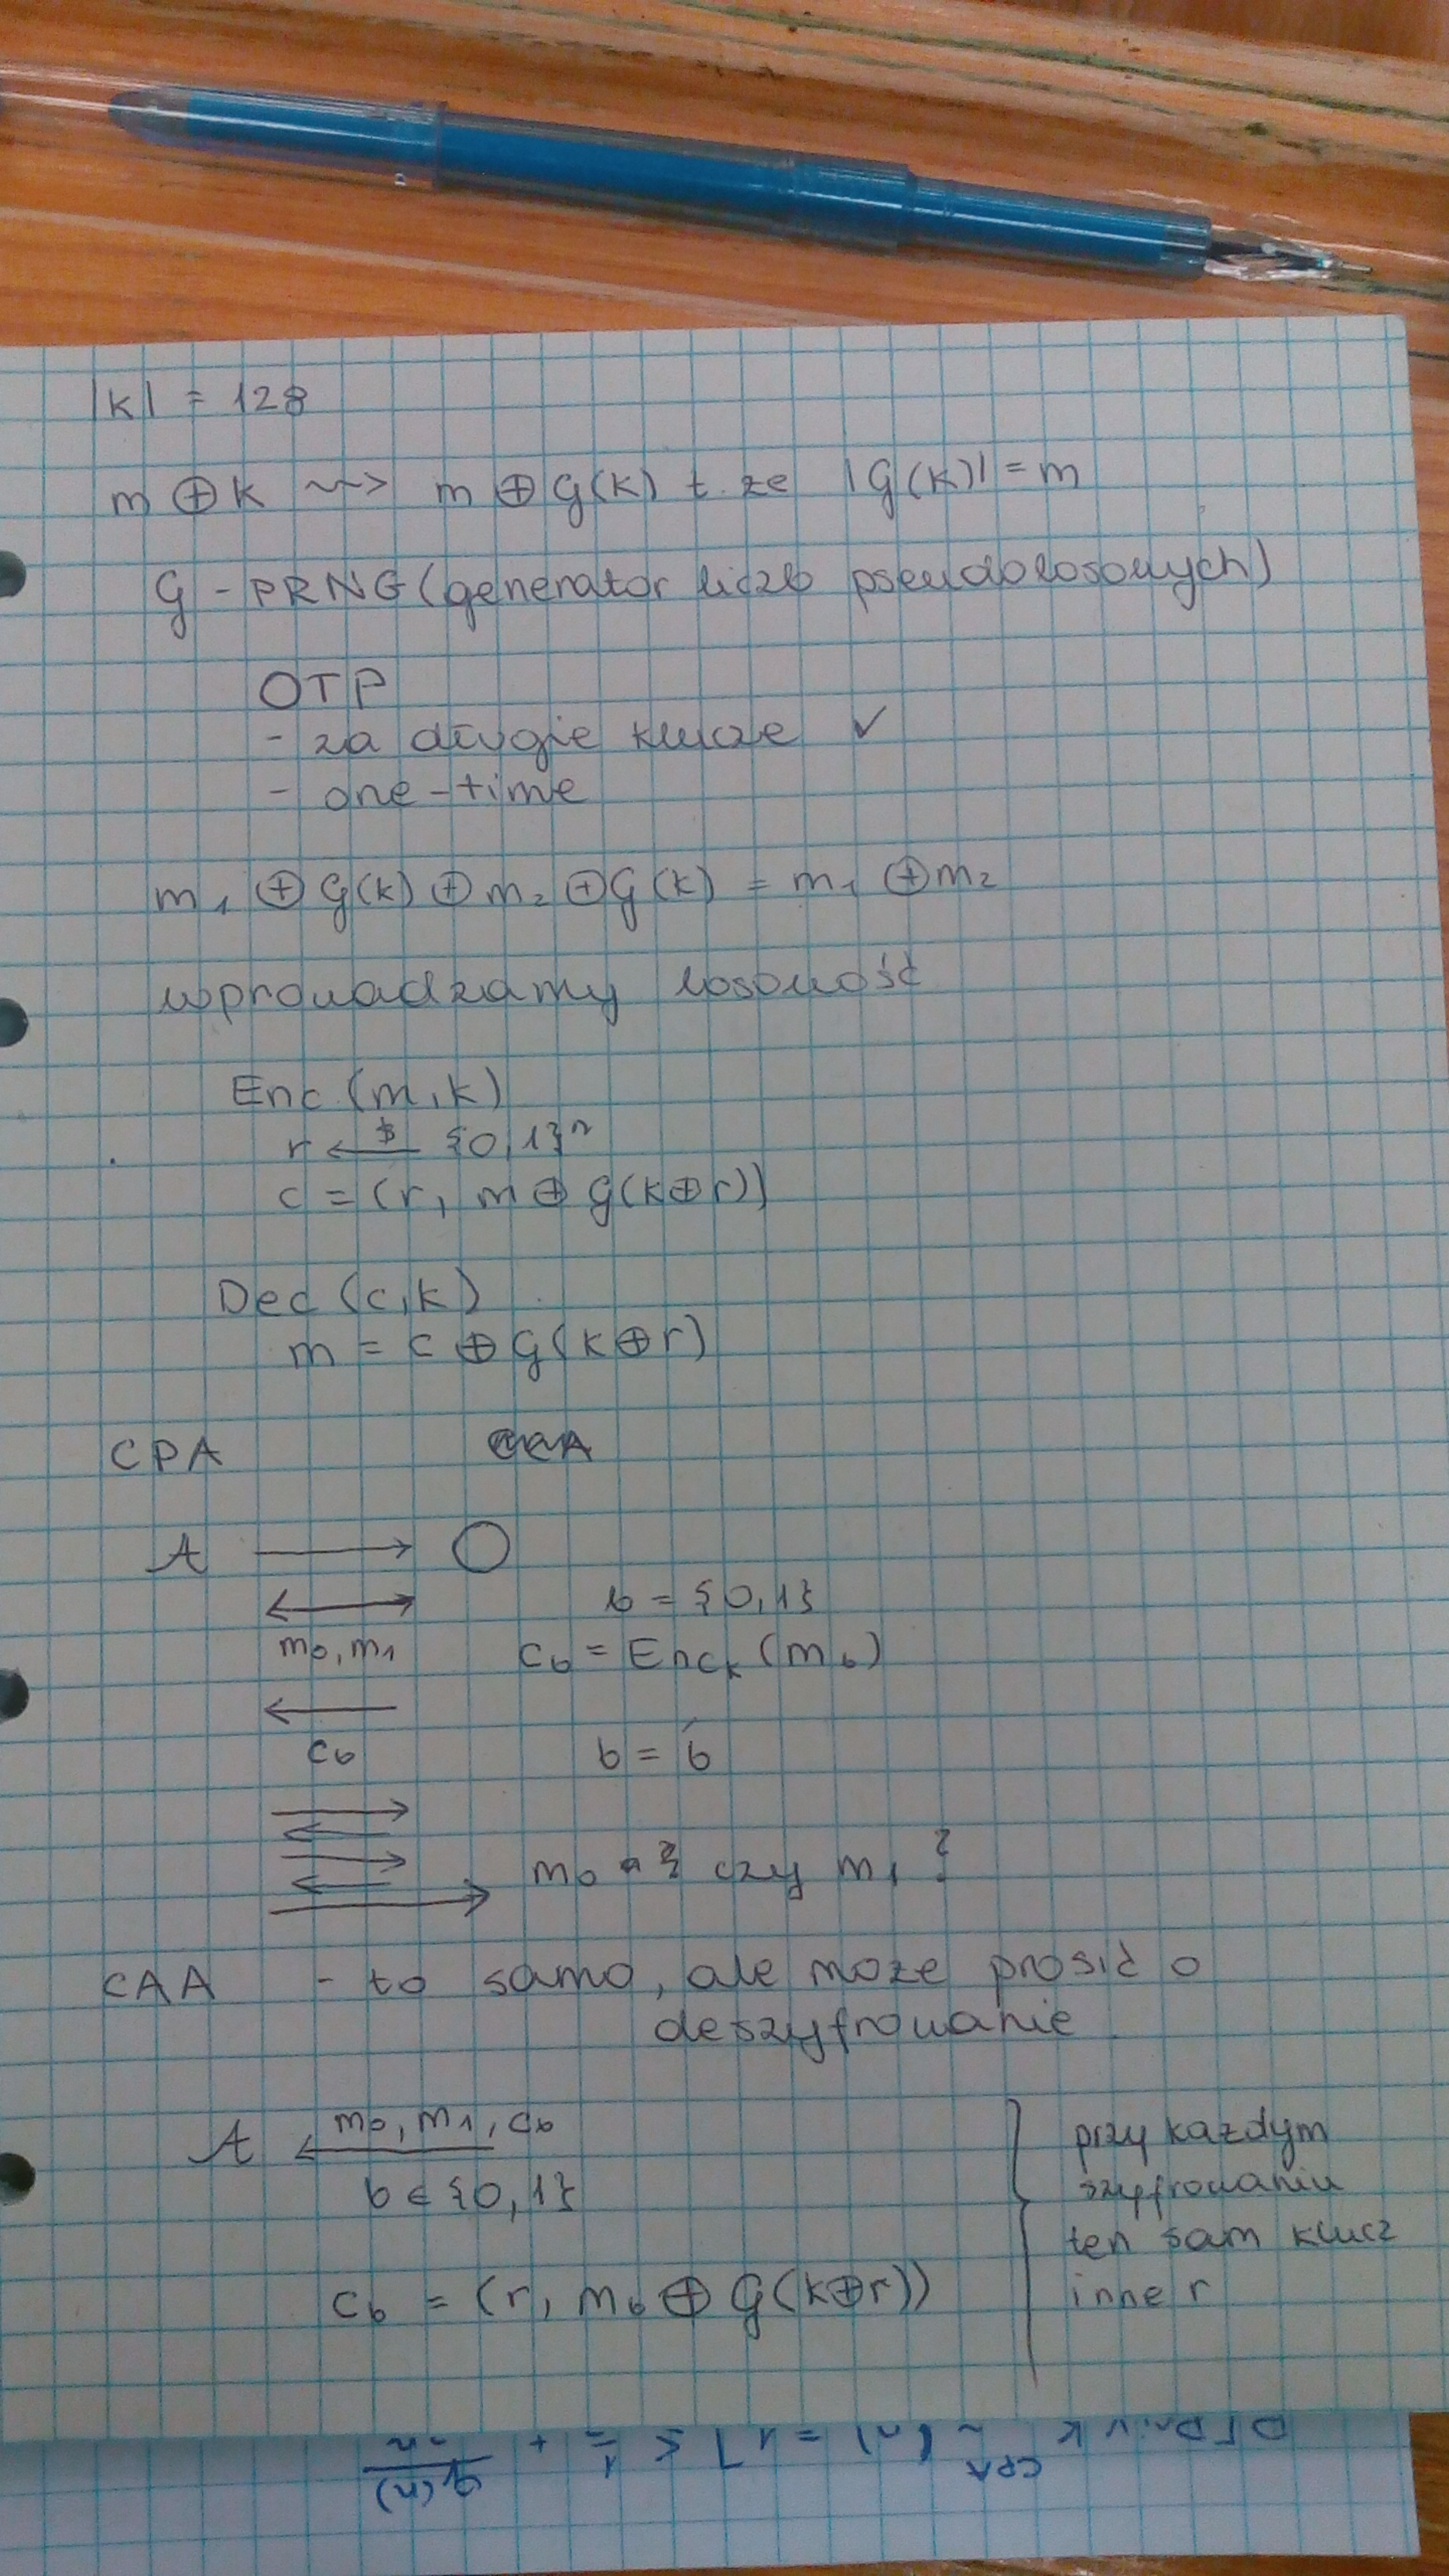 |k| = 128
m ⊕ k ⇝ m ⊕ G(k) t. że |G(k)| = m
G - PRNG (generator liczb pseudolosowych)
OTP
- za długie klucze ✓
- one-time
m₁ ⊕ G(k) ⊕ m₂ ⊕ G(k) = m₁ ⊕ m₂
wprowadzamy losowość
Enc (m, k)
r ←$ {0,1}ⁿ
c = (r, m ⊕ G(k⊕r))
Dec (c, k)
m = c ⊕ G(k⊕r)
CPA
A → O
↔ b = {0,1}
m₀, m₁ c_b = Enc_k (m_b)
←
c_b b = b́
m₀ czy m₁ ?
CAA - to samo, ale może prosić o
deszyfrowanie
A ← m₀, m₁, c_b
b ∈ {0,1}
c_b = (r, m_b ⊕ G(k⊕r))
przy każdym
szyfrowaniu
ten sam klucz
inne r